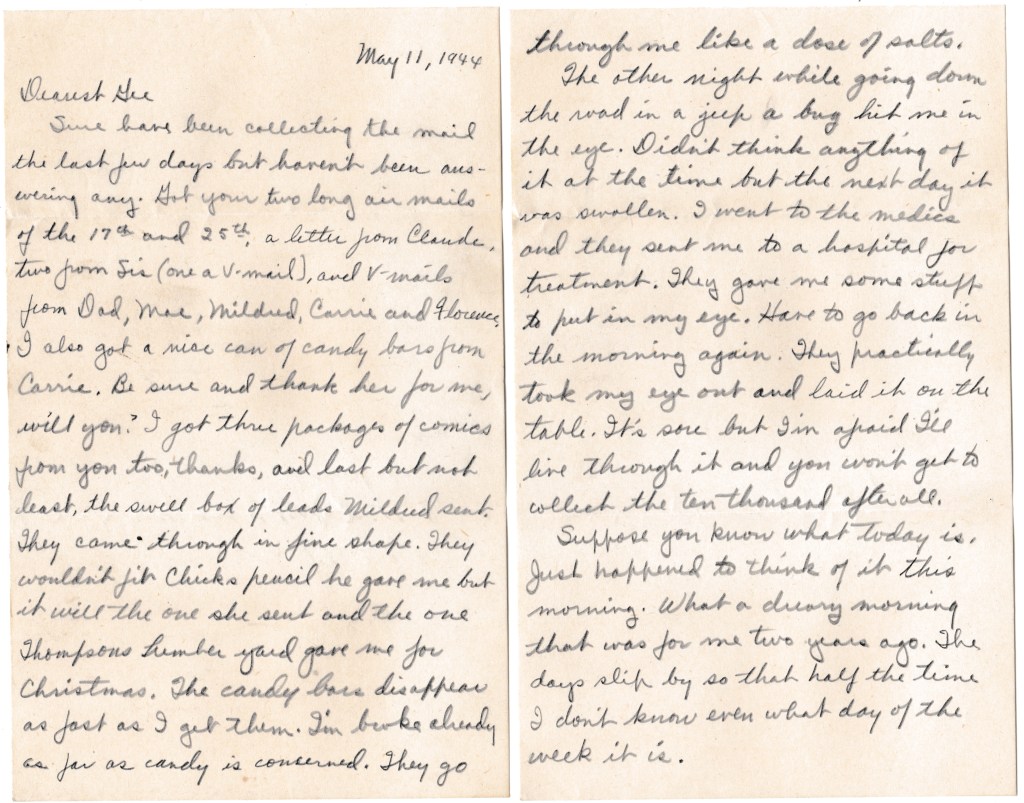 May 11, 1944
Dearest Gee
Sure have been collecting the mail
the last few days but haven't been ans-
wering any. Got your two long air mails
of the 17th and 25th, a letter from Claude,
two from Sis (one a V-mail), and V-mails
from Dad, Mae, Mildred, Carrie and Florence,
I also got a nice can of candy bars from
Carrie. Be sure and thank her for me,
will you? I got three packages of comics
from you too, thanks, and last but not
least, the swell box of leads Mildred sent.
They came through in fine shape. They
wouldn't fit Chicks pencil he gave me but
it will the one she sent and the one
Thompsons Lumber yard gave me for
Christmas. The candy bars disappear
as fast as I get them. I'm broke already
as far as candy is concerned. They go
through me like a dose of salts.
The other night while going down
the road in a jeep a bug hit me in
the eye. Didn't think anything of
it at the time but the next day it
was swollen. I went to the medics
and they sent me to a hospital for
treatment. They gave me some stuff
to put in my eye. Have to go back in
the morning again. They practically
took my eye out and laid it on the
table. It's sore but I'm afraid I'll
live through it and you won't get to
collect the ten thousand after all.
Suppose you know what today is.
Just happened to think of it this
morning. What a dreary morning
that was for me two years ago. The
days slip by so that half the time
I don't know even what day of the
week it is.